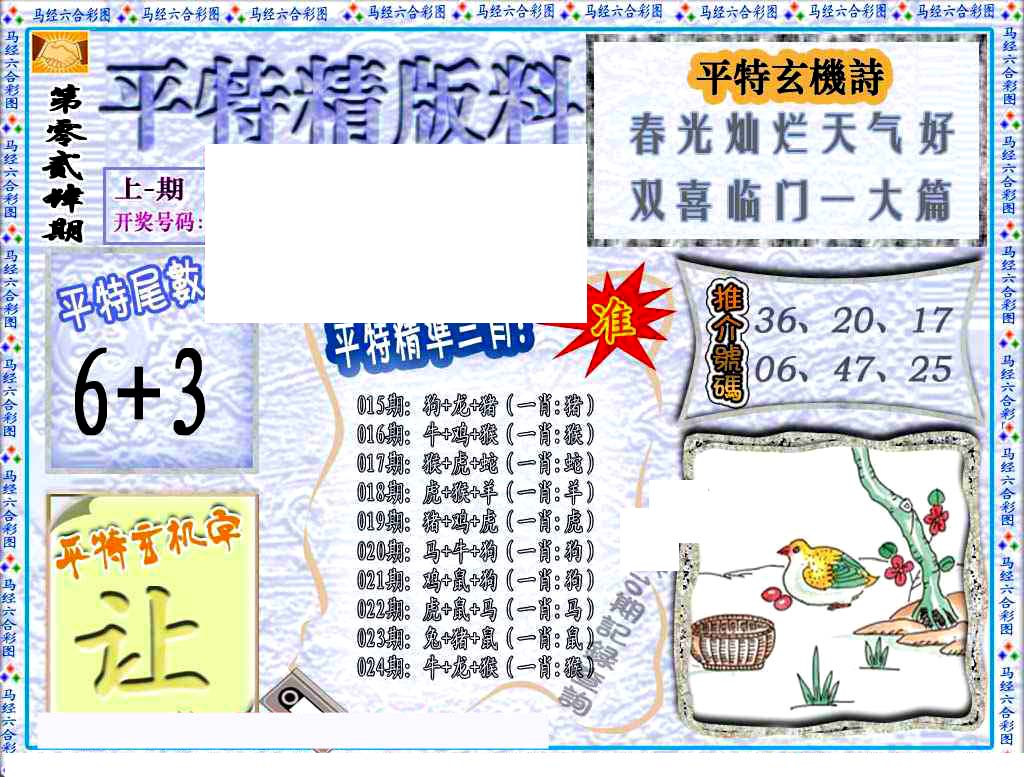 马经六合彩图 马经六合彩图 马经六合彩图 马经六合彩图 马经六合彩图 马经六合彩图 马经六合彩图 马经六合彩图 马经六合彩图
马经六合彩图
马经六合彩图
马经六合彩图
马经六合彩图
马经六合彩图
马经六合彩图
马经六合彩
第零贰肆期
平特精版料
上-期
开奖号码:
平特玄機詩
春光灿烂天气好
双喜临门一大篇
平特尾數
6+3
平特精準三肖!
准
推介號碼
36、20、17
06、47、25
015期: 狗+龙+猪(一肖:猪)
016期: 牛+鸡+猴(一肖:猴)
017期: 猴+虎+蛇(一肖:蛇)
018期: 虎+猴+羊(一肖:羊)
019期: 猪+鸡+虎(一肖:虎)
020期: 马+牛+狗(一肖:狗)
021期: 鸡+鼠+狗(一肖:狗)
022期: 虎+鼠+马(一肖:马)
023期: 兔+猪+鼠(一肖:鼠)
024期: 牛+龙+猴(一肖:猴)
期記錄查詢
平特玄机字
让
马经六合彩图
马经六合彩图
马经六合彩图
马经六合彩图
马经六合彩图
马经六合彩图
马经六合彩